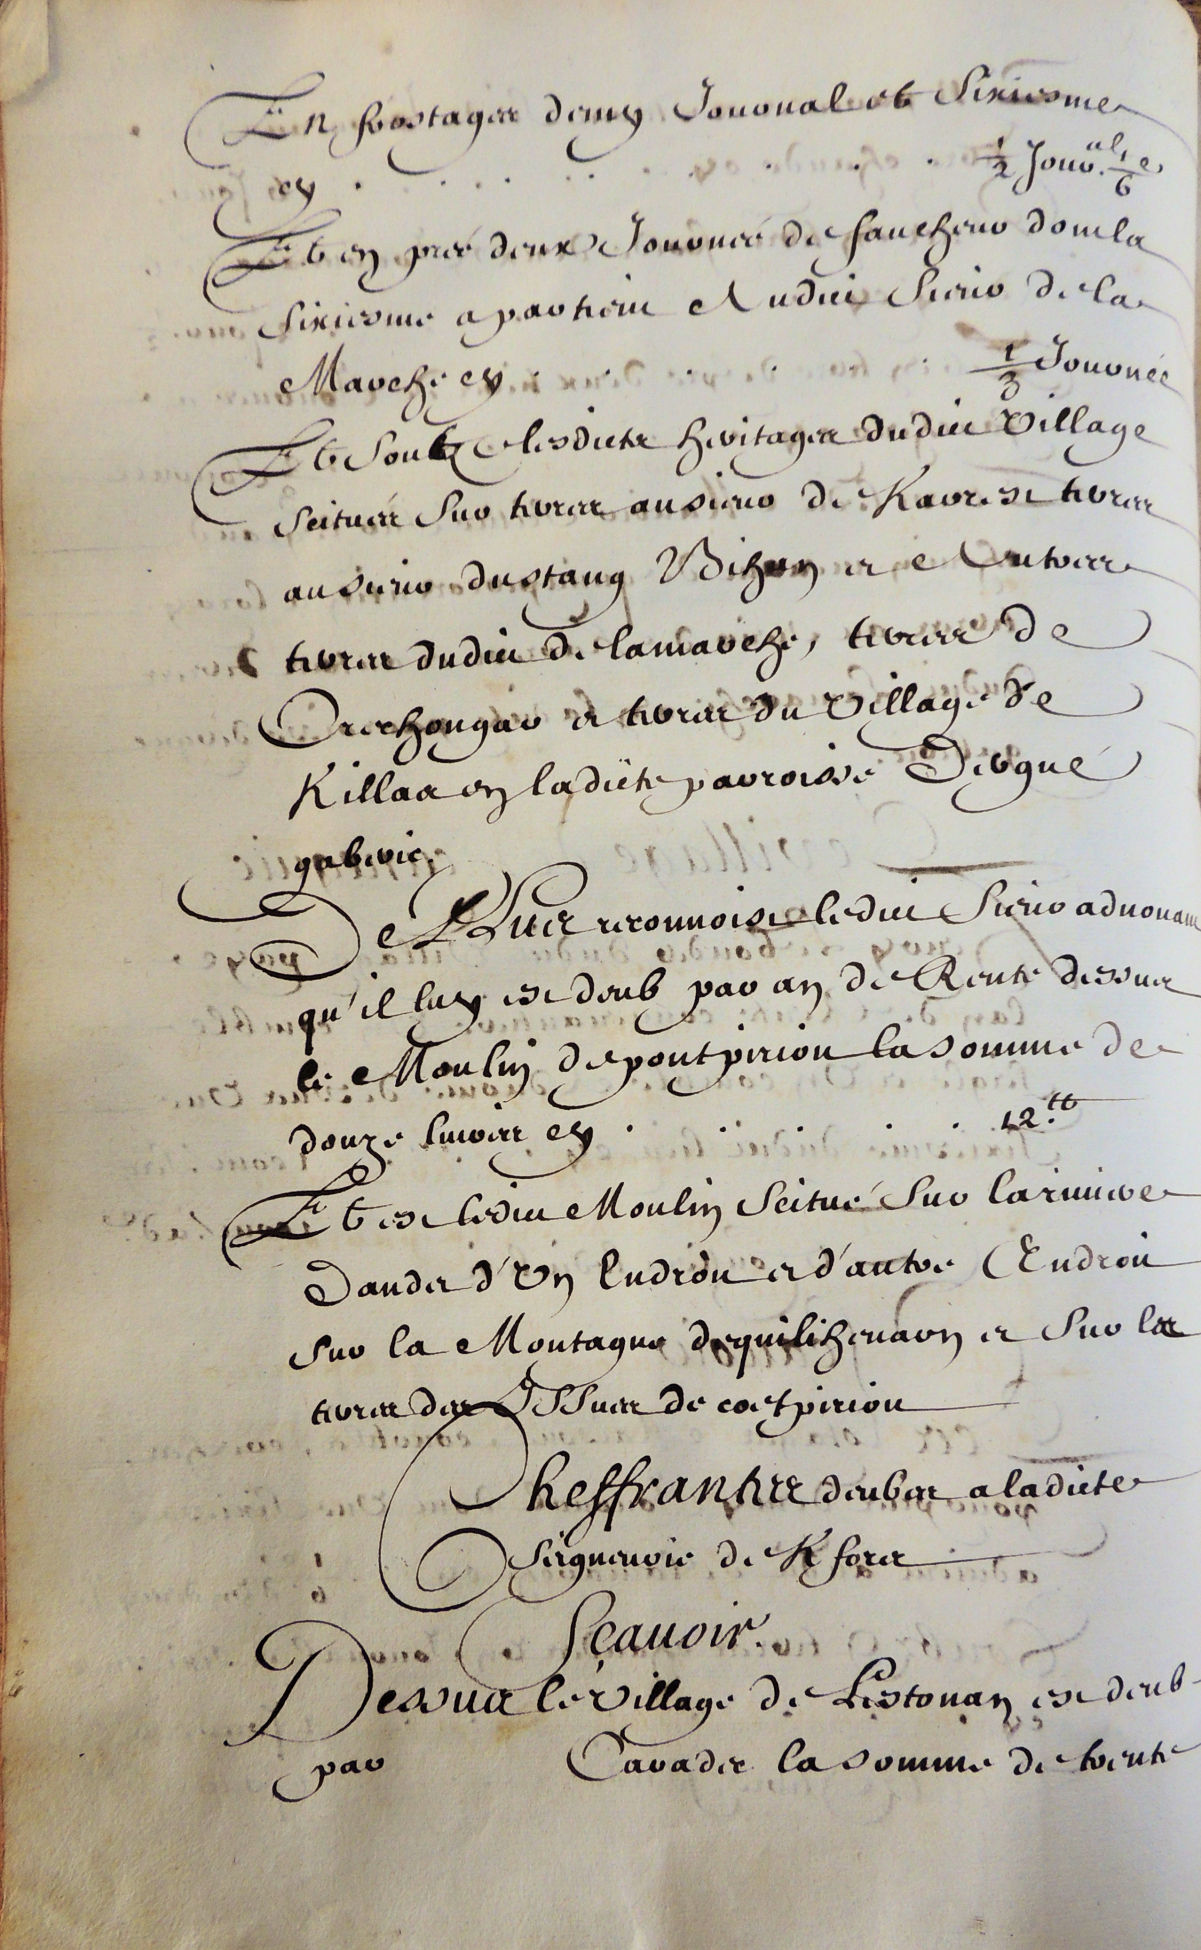 En frostages demy Journal et Sixiesme
en . . . . . . . . ½ Jour.al 1/6e
Et en pré deux Journée de faucheur dont la
Sixiesme apartient Audict Sieur de la
Marche en . . . . . . 1/3 Journée
Et sont lesdicts heritages dudict Village
Scitués Sur terres au sieur de Karrest terres
au sieur dustang Bihan et Autres
terres dudict de lamarche, terres de
Crechongar et terres du Village de
Killaa en ladicte parroisse Dergué
gaberic.
De Plus reconnoist ledict Sieur aduouant
qu'il luy est deub par an de Rente dessus
le Moulin de pontpirion la somme de
douze liures en . . . . . 12.tt
Et est ledict Moulin Scitué Sur lariuiere
Daudet d'Un Endroit et d'autre Endroit
Sur la Montagne dequilihouarn et Sur les
terres des Issues de coetpirion
Cheffrantes deubes a ladicte
Seigneurie de Kfors
Sçauoir.
Dessus le Village de Lestonan est deub
par Carades la somme de trente